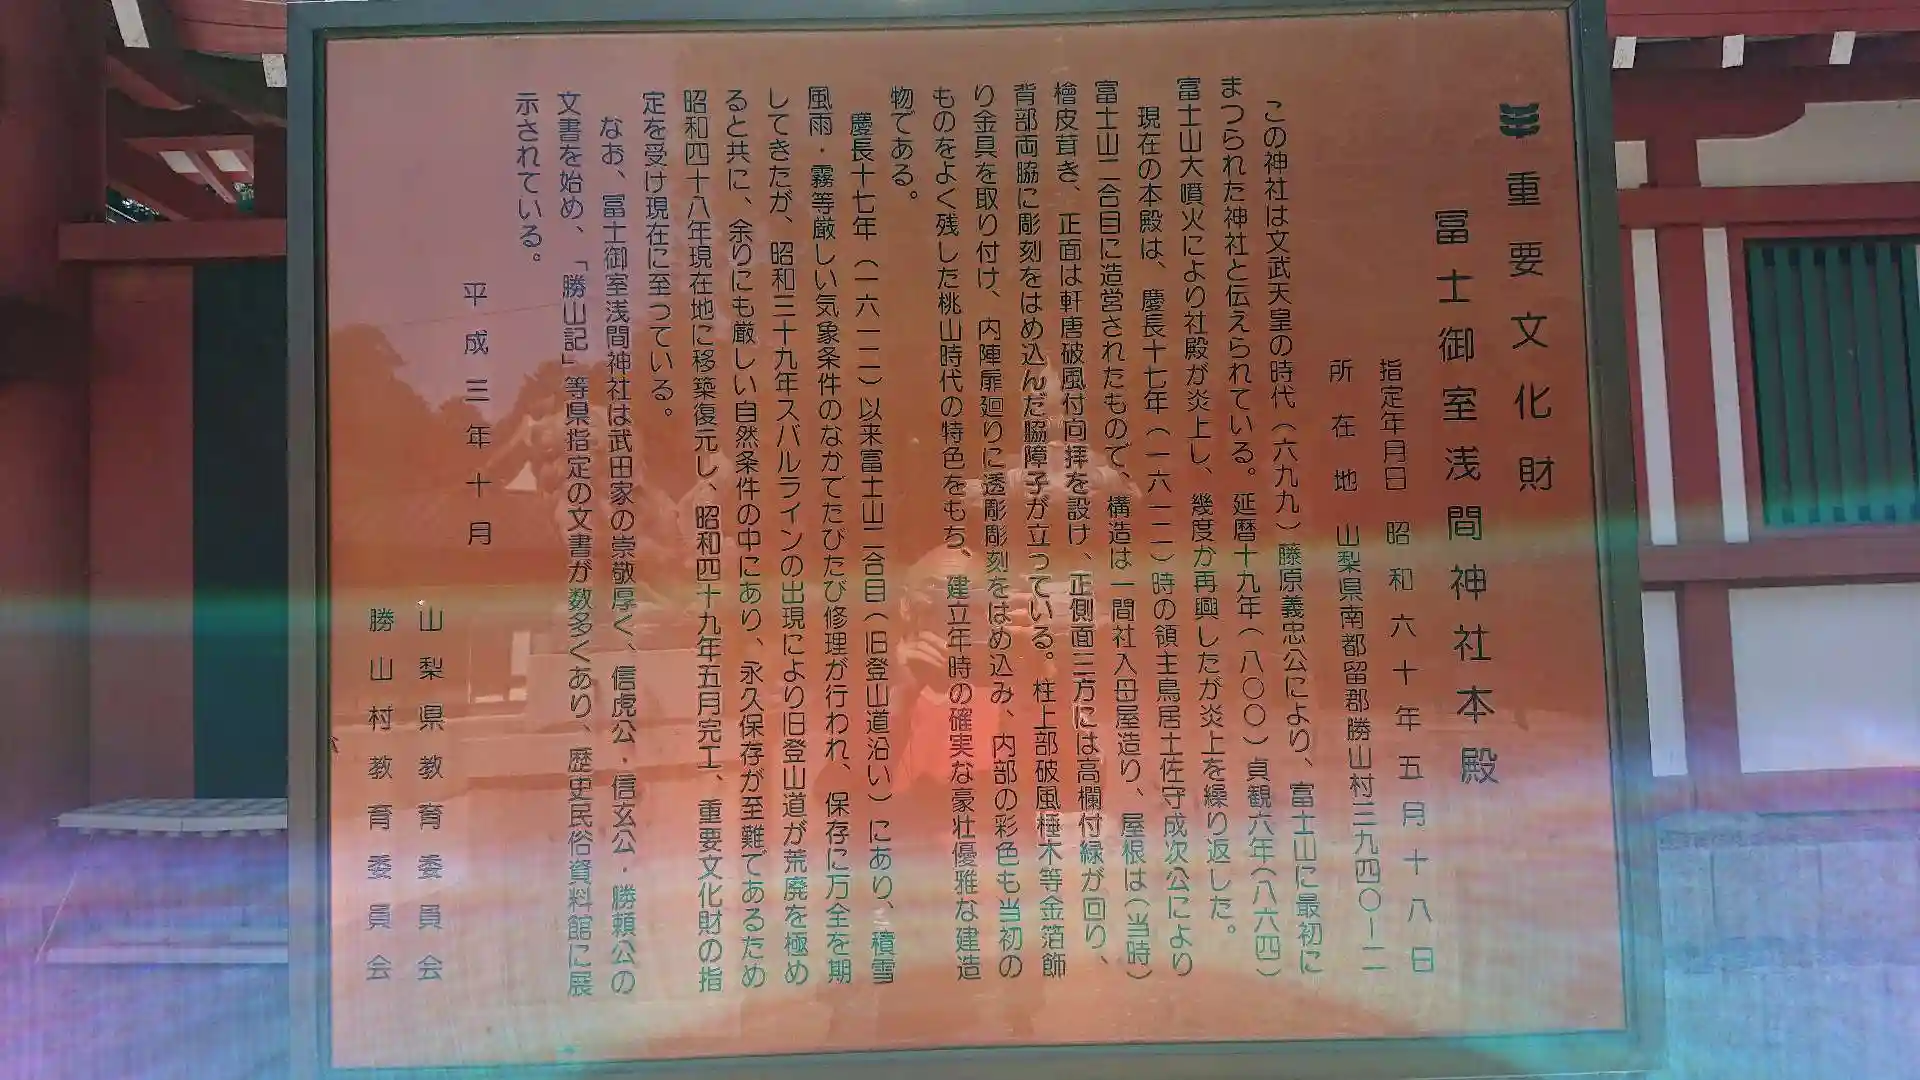 重要文化財
冨士御室浅間神社本殿
指定年月日 昭和六十年五月十八日
所在地 山梨県南都留郡勝山村三九四〇ー二
この神社は文武天皇の時代(六九九)藤原義忠公により、富士山に最初に
まつられた神社と伝えられている。延暦十九年(八〇〇)貞観六年(八六四)
富士山大噴火により社殿が炎上し、幾度か再興したが炎上を繰り返した。
現在の本殿は、慶長十七年(一六一二)時の領主鳥居土佐守成次公により
富士山二合目に造営されたもので、構造は一間社入母屋造り、屋根は(当時)
檜皮茸き、正面は軒唐破風付向拝を設け、正側面三方には高欄付縁が回り、
背部両脇に彫刻をはめ込んだ脇障子が立っている。柱上部破風棰木等金箔飾
り金具を取り付け、内陣扉廻りに透彫彫刻をはめ込み、内部の彩色も当初の
ものをよく残した桃山時代の特色をもち、建立年時の確実な豪壮優雅な建造
物である。
慶長十七年(一六一二)以来富士山二合目(旧登山道沿い)にあり、積雪
風雨・霧等厳しい気象条件のなかでたびたび修理が行われ、保存に万全を期
してきたが、昭和三十九年スバルラインの出現により旧登山道が荒廃を極め
ると共に、余りにも厳しい自然条件の中にあり、永久保存が至難であるため
昭和四十八年現在地に移築復元し、昭和四十九年五月完工、重要文化財の指
定を受け現在に至っている。
なお、冨士御室浅間神社は武田家の崇敬厚く、信虎公・信玄公・勝頼公の
文書を始め、「勝山記」等県指定の文書が数多くあり、歴史民俗資料館に展
示されている。
平成三年十月
山梨県教育委員会
勝山村教育委員会